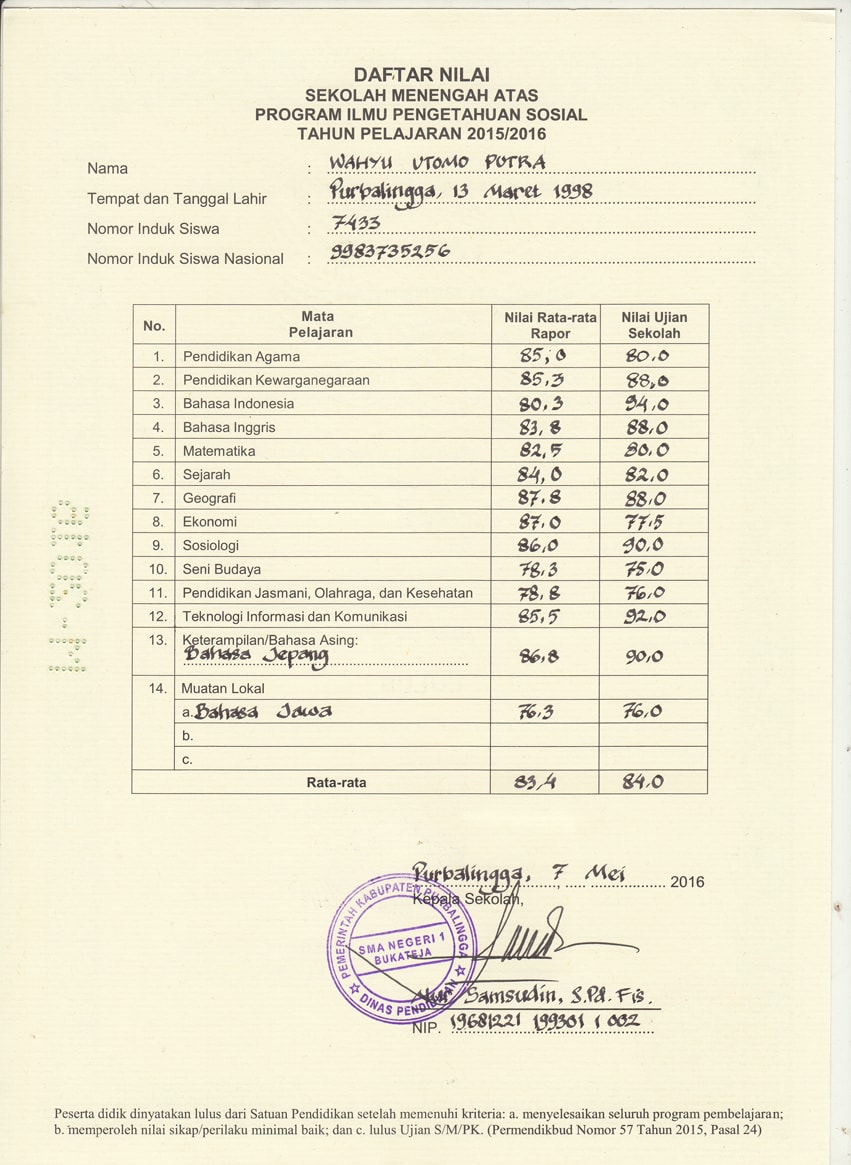 DAFTAR NILAI
SEKOLAH MENENGAH ATAS
PROGRAM ILMU PENGETAHUAN SOSIAL
TAHUN PELAJARAN 2015/2016
Nama : WAHYU UTOMO PUTRA
Tempat dan Tanggal Lahir : Purbalingga, 13 Maret 1998
Nomor Induk Siswa : 7433
Nomor Induk Siswa Nasional : 9983735256
No. Mata Pelajaran Nilai Rata-rata Rapor Nilai Ujian Sekolah
1. Pendidikan Agama 85,0 80,0
2. Pendidikan Kewarganegaraan 85,3 88,0
3. Bahasa Indonesia 80,3 94,0
4. Bahasa Inggris 83,8 88,0
5. Matematika 82,5 80,0
6. Sejarah 84,0 82,0
7. Geografi 87,8 88,0
8. Ekonomi 87,0 77,5
9. Sosiologi 86,0 90,0
10. Seni Budaya 78,3 75,0
11. Pendidikan Jasmani, Olahraga, dan Kesehatan 78,8 76,0
12. Teknologi Informasi dan Komunikasi 85,5 92,0
13. Keterampilan/Bahasa Asing:
Bahasa Jepang 86,8 90,0
14. Muatan Lokal
a. Bahasa Jawa 76,3 76,0
b.
c.
Rata-rata 83,4 84,0
Purbalingga, 7 Mei 2016
Kepala Sekolah,
PEMERINTAH KABUPATEN PURBALINGGA
SMA NEGERI 1
BUKATEJA
DINAS PENDIDIKAN
Samsudin, S.Pd. Fis.
NIP. 19681221 199301 1 002
Peserta didik dinyatakan lulus dari Satuan Pendidikan setelah memenuhi kriteria: a. menyelesaikan seluruh program pembelajaran;
b. memperoleh nilai sikap/perilaku minimal baik; dan c. lulus Ujian S/M/PK. (Permendikbud Nomor 57 Tahun 2015, Pasal 24)